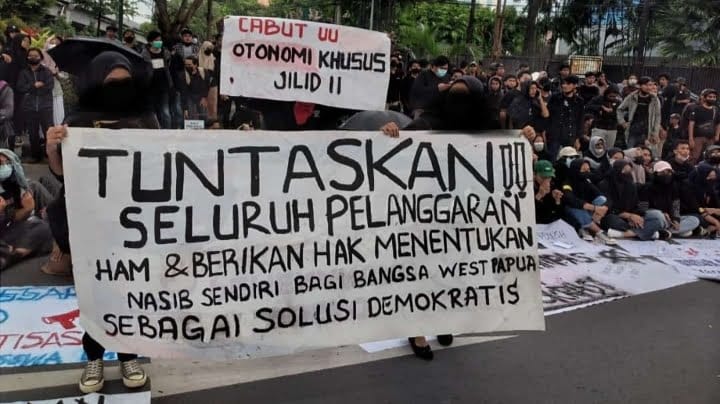 CABUT UU
OTONOMI KHUSUS
JILID II
TUNTASKAN!!
SELURUH PELANGGARAN
HAM & BERIKAN HAK MENENTUKAN
NASIB SENDIRI BAGI BANGSA WEST PAPUA
SEBAGAI SOLUSI DEMOKRATIS